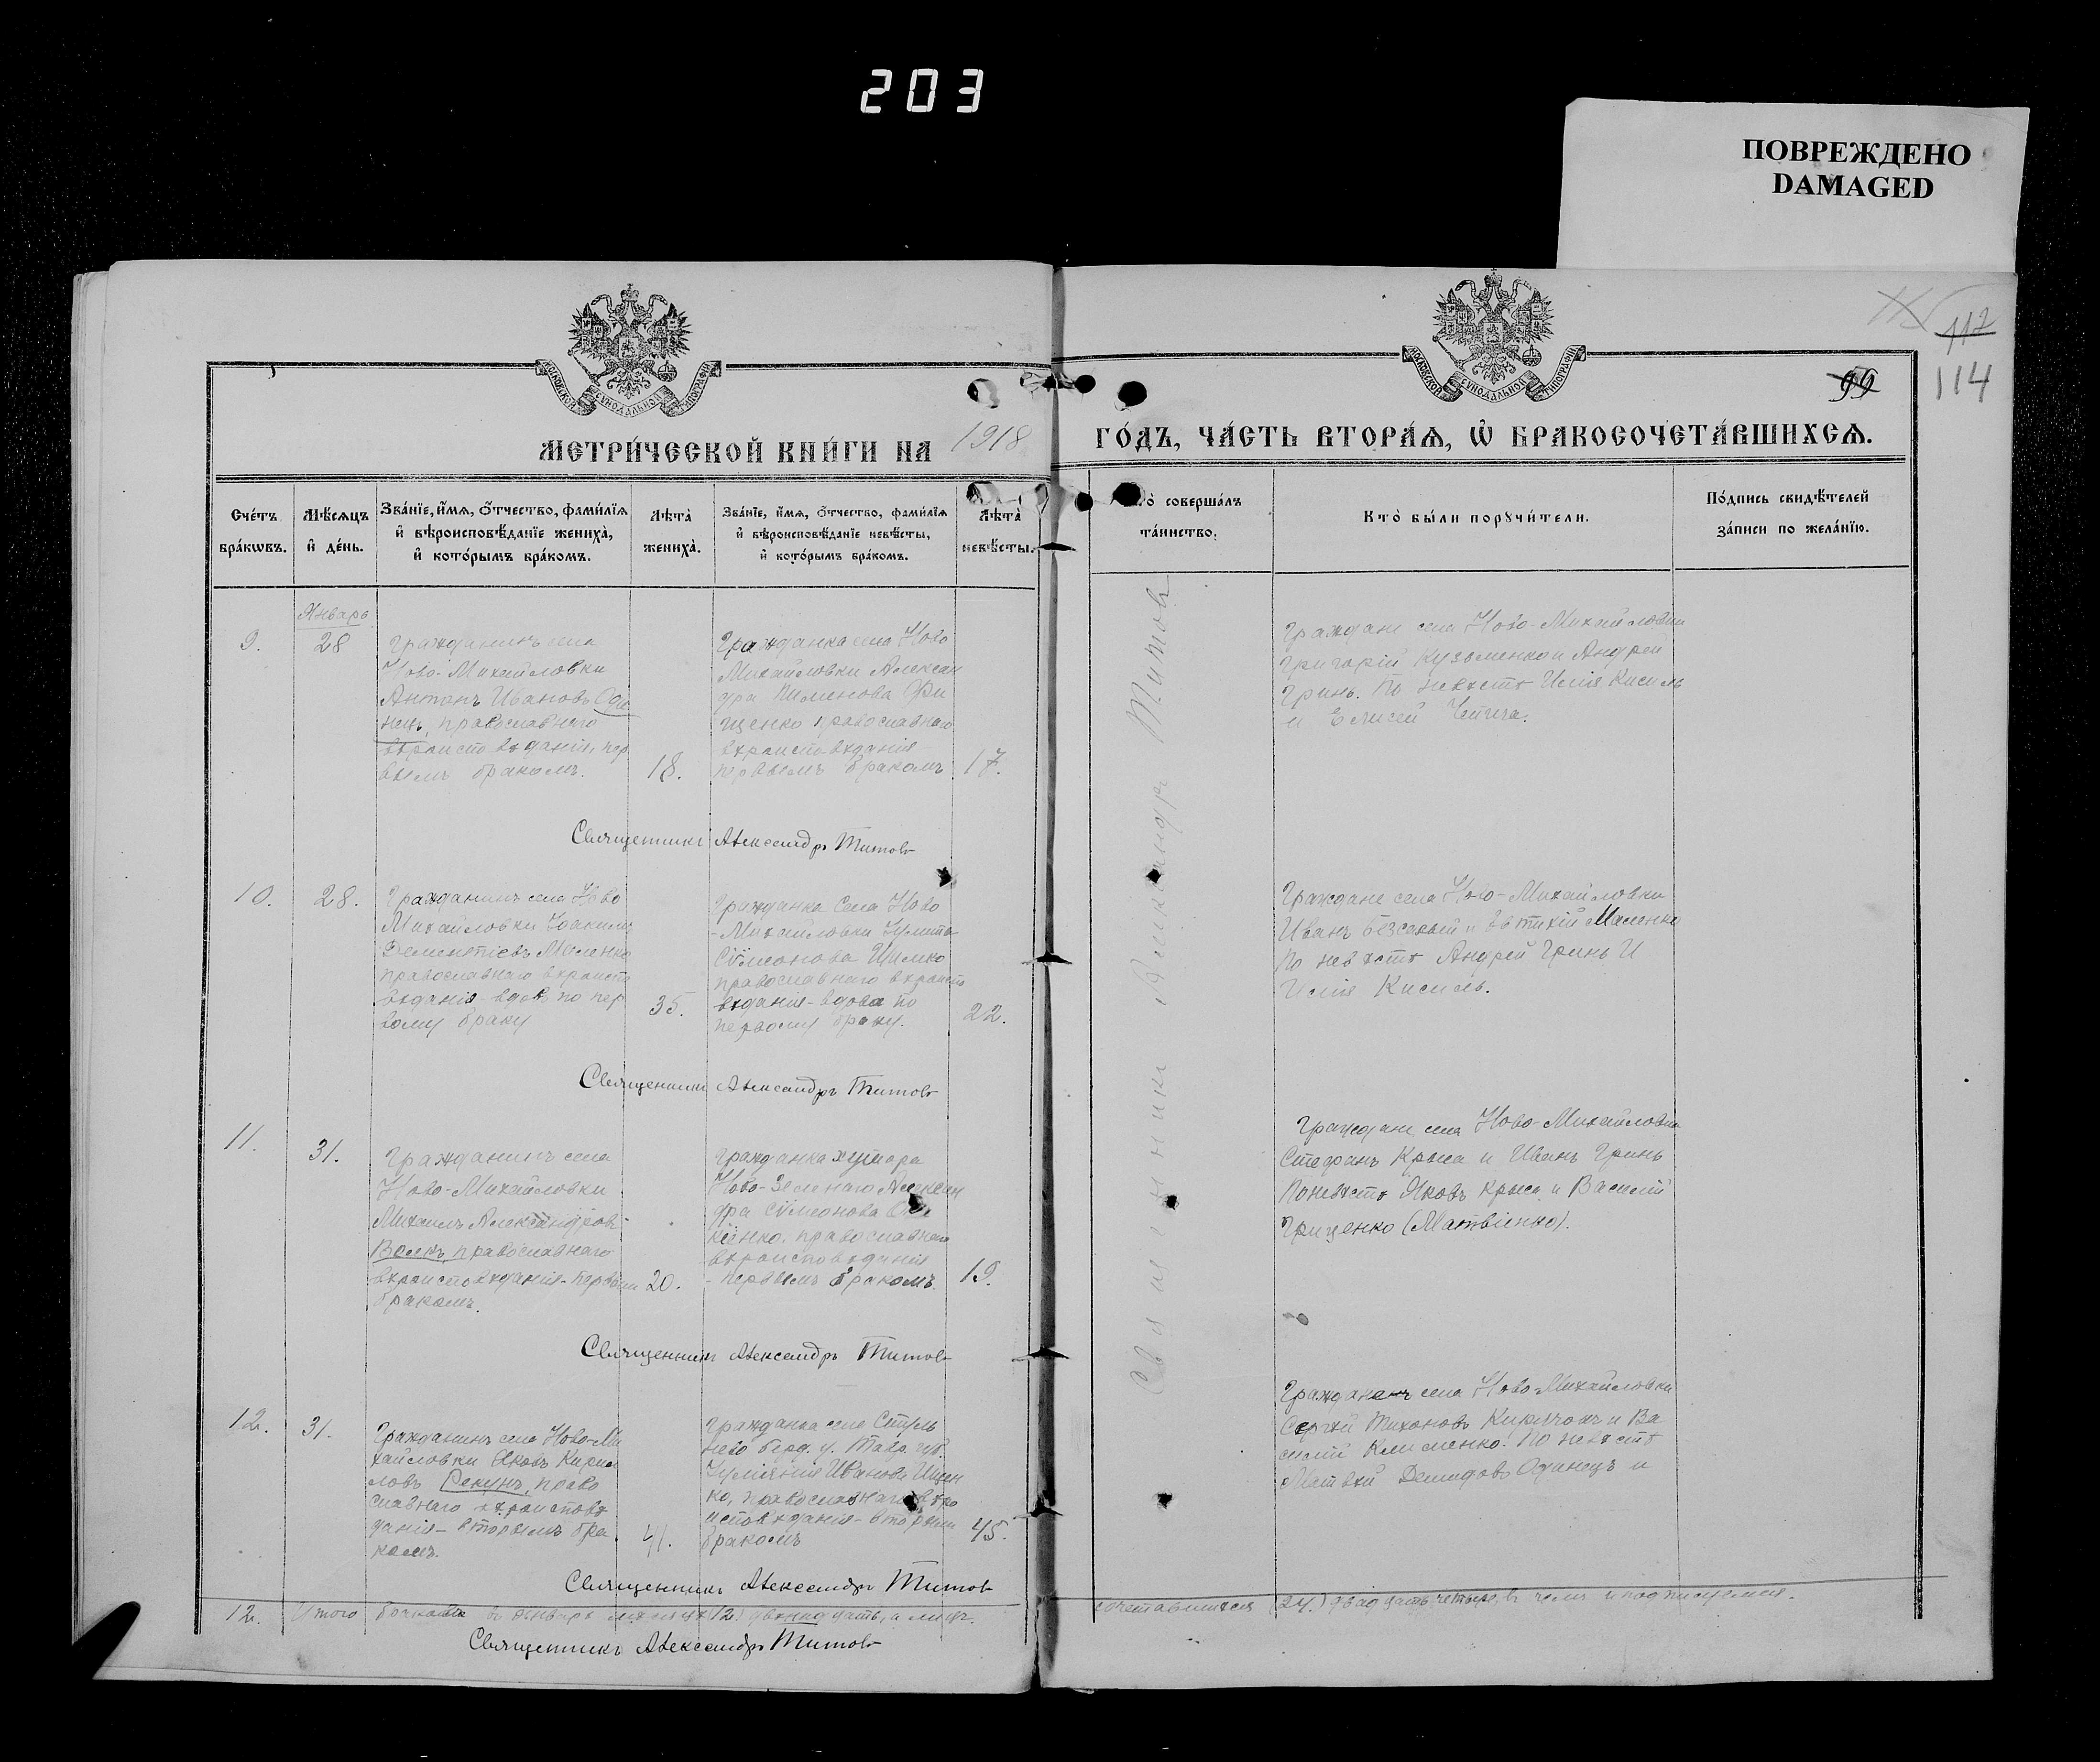 203
ПОВРЕЖДЕНО
DAMAGED
117
114
99
МОСКОВСКОЙ СѴНОДАЛЬНОЙ ТИПОГРАФІИ
МОСКОВСКОЙ СѴНОДАЛЬНОЙ ТИПОГРАФІИ
МЕТРИ́ЧЕСКОЙ КНИ́ГИ НА 1918 ГО́ДЪ, ЧА́СТЬ ВТОРА́Ѧ, Ѡ҆ БРАКОСОЧЕТА́ВШИХСѦ.
Сче́тъ бра́кѡвъ.
Мѣ́сяцъ и҆ де́нь.
Зва́нїе, и҆́мѧ, ѻ҆́тчество, фами́лїѧ
и҆ вѣроисповѣ́данїе жениха̀,
и҆ кото́рымъ бра́комъ.
Лѣта̀ жениха̀.
Зва́нїе, и҆́мѧ, ѻ҆́тчество, фами́лїѧ
и҆ вѣроисповѣ́данїе невѣ́сты,
и҆ кото́рымъ бра́комъ.
Лѣта̀ невѣ́сты.
совершáлъ
та́инство.
Кто̀ бы́ли порꙋчи́тели.
По́дпись свидѣ́телей
за́писи по жела́нїю.
Январь
9.
28
Гражданинъ села
Ново-Михайловки
Антонъ Ивановъ Оди
нецъ, православнаго
вѣроисповѣданія, пер
вымъ бракомъ.
18.
Гражданка села Ново
Михайловки Алексан
дра Пименова
щенко православнаго
вѣроисповѣданія
первымъ бракомъ
17.
Граждане села Ново-Михайловки
Григорій Кузьменко и Андрей
Гринь. По невѣстѣ Илія Кисиль
и Елисей
Священникъ Александръ Титовъ
10.
28.
Гражданинъ села Ново
Михайловки Іоакимъ
Дементіевъ Масенко
православнаго вѣроиспо
вѣданія - вдовъ по пер
вому браку
35.
Гражданка села Ново
-Михайловки Іулита
Сѵмеонова Шимко
православнаго вѣроиспо
вѣданія - вдова по
первому браку.
22.
Граждане села Ново-Михайловки
Иванъ и Евтихій Масенко
По невѣстѣ Андрей Гринь и
Илія Кисиль.
Священникъ Александръ Титовъ
11.
31.
Гражданинъ села
Ново-Михайловки
Михаилъ Александровъ
Волкъ, православнаго
вѣроисповѣданія - первымъ
бракомъ.
20.
Гражданка хутора
Ново-Зеленаго Алексан
дра Сѵмеонова
православнаго
вѣроисповѣданія
- первымъ бракомъ.
19.
Граждане села Ново-Михайловки
Стефанъ Крыса и Иванъ Гринь
По невѣстѣ Яковъ Крыса и Василій
Гриценко (Матвіенко).
Священникъ Александръ Титовъ
12.
31.
Гражданинъ села Ново-Ми
хайловки Яковъ Кирил
ловъ Рекунъ, право
славнаго вѣроисповѣ
данія - вторымъ бра
комъ.
41.
Гражданка села
бѣрд. у. Тавр. губ.
Іуліанія Иванова Ищен
ко, православнаго вѣро
исповѣданія - вторымъ
бракомъ
45.
Сергѣй Тихоновъ и Ва
силій Клименко. По невѣстѣ
Матвѣй Демидовъ Одинецъ и
Священникъ Александръ Титовъ
12. Итого браковъ въ январѣ мѣсяцѣ (12) двѣнадцать, а лицъ
сочетавшихся (24.) двадцать четыре, въ чемъ и подписуемся.
Священникъ Александръ Титовъ
Священникъ Александръ Титовъ